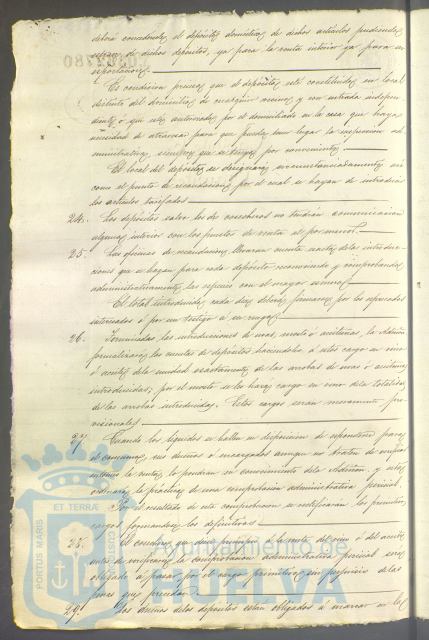 deberá concederles el depósito doméstico de dichos artículos pudiendo
de dichos depósitos, ya para la venta interior ya para su
exportacion.
Es condicion precisa que el depósito esté constituido en local
distinto del domicilio de cualquier vecino y con entrada indepen-
diente ó que esté autorizado por el domiciliado en la casa que haya
necesidad de atravesar para que pueda tener lugar la inspeccion ad-
ministrativa, siempre que se tenga por conveniente.
El local del depósito se designará circunstanciadamente así
como el punto de recaudacion por el cual se hayan de introducir
los artículos tarifados
24. Los depósitos salvo los de cosecheros no tendrán comunicacion
alguna interior con los puestos de venta al por menor.
25. Los fieles de recaudacion llevarán cuenta exacta de las introduc-
ciones que se hagan para cada depósito reconociendo y comprobando
administrativamente las especies con el mayor esmero
El total introducido cada dia deberá firmarse por los
interesados ó por un testigo a su ruego
26. Terminadas las introducciones de uvas, mosto ó aceitunas, la Admon
formalizará las cuentas de depósito haciendo á estos cargo en vino
ó aceite de la mitad exactamente de las arrobas de uvas ó aceitunas
introducidas; por el mosto se les hará cargo en vino de la totalidad
de las arrobas introducidas. Estos cargos serán meramente pro-
visionales
27. Cuando los líquidos se hallen en disposicion de espenderse para
el consumo, sus dueños ó encargados aunque no traten de verificar
entonces la venta, lo pondrán en conocimiento de la Admon. y esta
ordenará la práctica de una comprobacion administrativa pericial.
Por el resultado de esta comprobacion se rectificarán los primitivos
cargos formándose los definitivos
28. El cosechero que dé principio á la venta del vino ó del aceite
antes de verificarse la comprobacion administrativa pericial será
obligado a pasar por el cargo primitivo sin perjuicio de las
penas que proceda
29. Los dueños de los depósitos están obligados a marcar en las
Ayuntamiento de
HUELVA
PORTUS MARIS
ET TERRAE
CUSTODIA